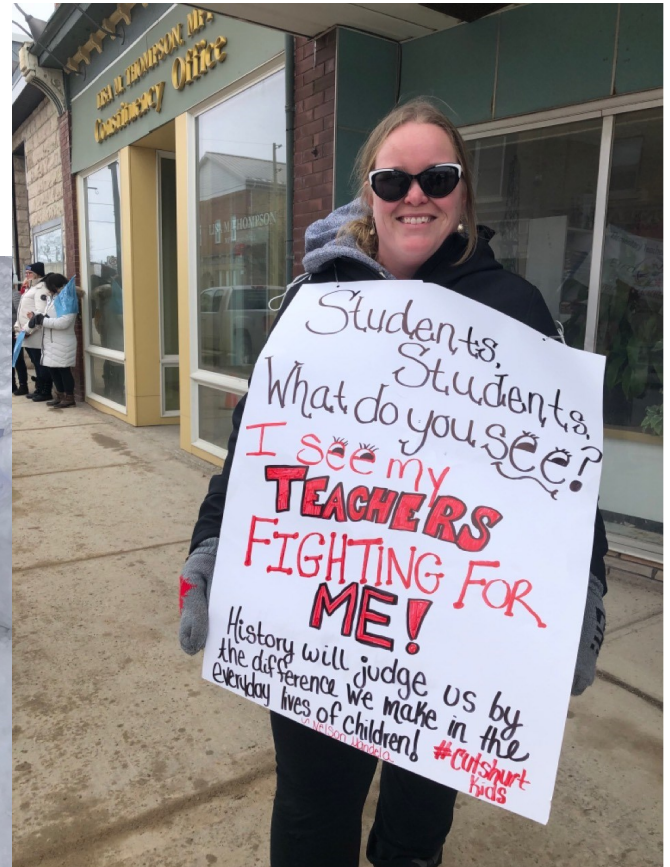 LISA M. THOMPSON, MPP
Constituency Office
LISA M THOMPSON
Students,
Students,
What do you see?
I see my
TEACHERS
FIGHTING FOR
ME!
History will judge us by
the difference we make in the
everyday lives of children!
~Nelson Mandela
#Cutshurt
Kids